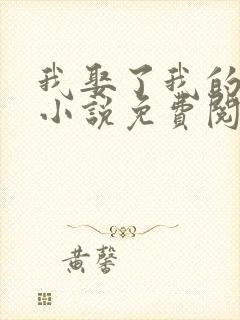 我娶了我的
小说免費閱
黄馨